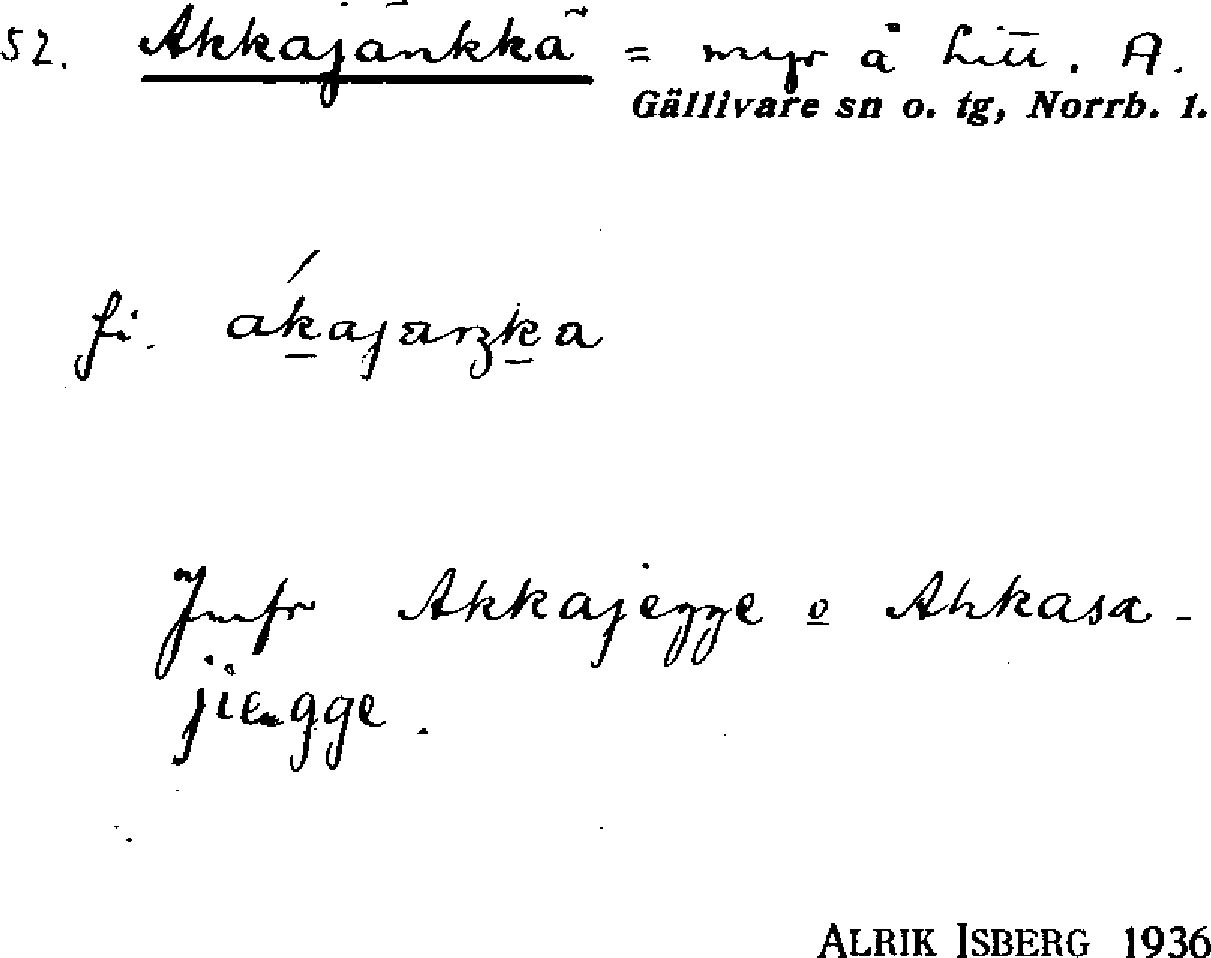 52. Akkajänkkä = myr å litt. A.
Gällivare sn o. tg, Norrb. l.
fi.
Jmfr Akkajegge o Ahkasa-
jiengge.
ALRIK ISBERG 1936